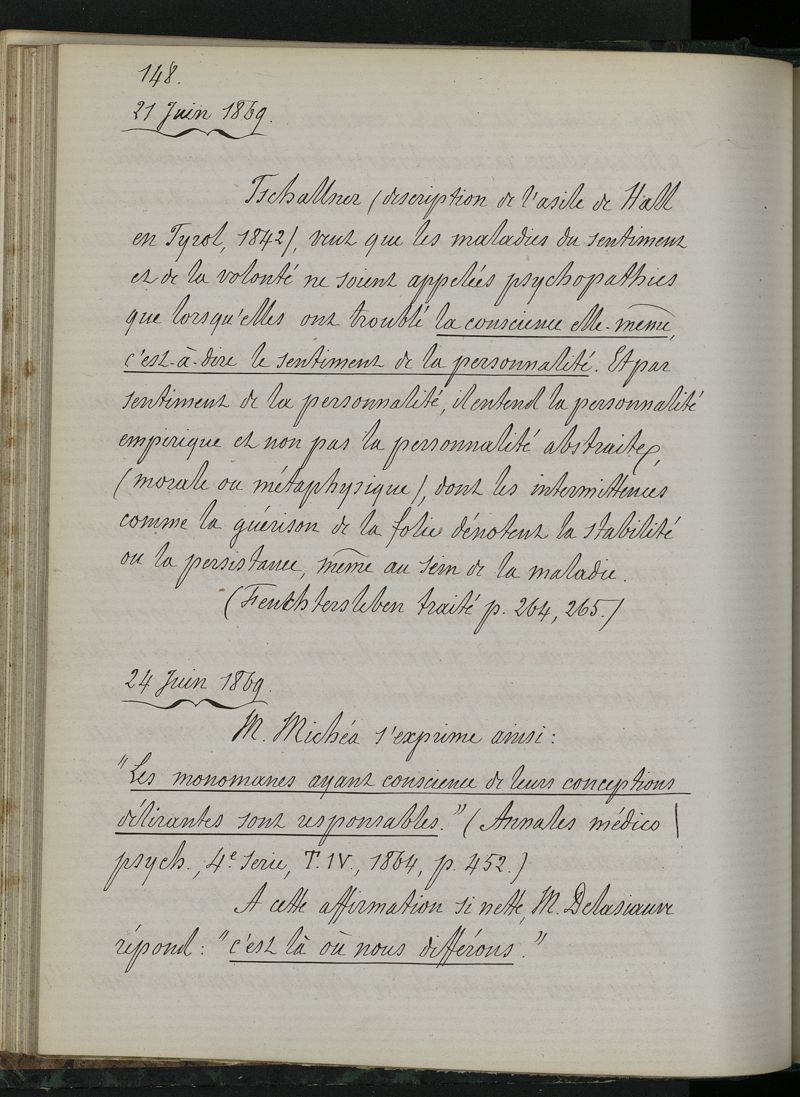 148.
21 Juin 1869.
Tschallner (description de l'asile de Hall
en Tyrol, 1842), veut que les maladies du sentiment
et de la volonté ne soient appelées psychopathies
que lorsqu'elles ont troublé la conscience elle-même,
c'est-à-dire le sentiment de la personnalité. Et par
sentiment de la personnalité, il entend la personnalité
empirique et non pas la personnalité abstraite,
(morale ou métaphysique), dont les intermittences
comme la guérison de la folie dénotent la stabilité
ou la persistance, même au sein de la maladie.
(Feuchtersleben traité p. 264, 265.)
24 Juin 1869.
M. Michéa s'exprime ainsi:
"Les monomanes ayant conscience de leurs conceptions
délirantes sont responsables." (Annales médico
psych., 4e Serie, T. IV., 1864, p. 452.)
A cette affirmation si nette, M. Delasiauve
répond: "c'est là où nous différons."